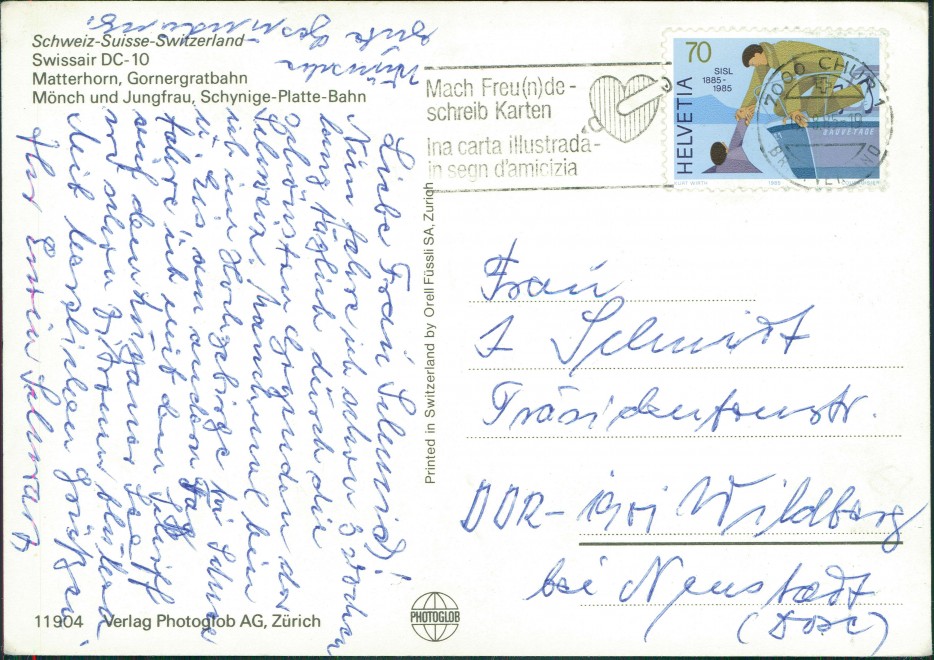 Schweiz-Suisse-Switzerland
Swissair DC-10
Matterhorn, Gornergratbahn
Mönch und Jungfrau, Schynige-Platte-Bahn
Mach Freu(n)de -
schreib Karten
Ina carta illustrada -
in segn d'amicizia
70
SISL
1885-
1985
HELVETIA
SAUVETAGE
KURT WIRTH
1985
7000 CHUR 1
Liebe Frau Schmidt!
Nun fahre ich schon 3 Wochen
lang täglich durch die
schönsten Gegenden der
Schweiz. Manchmal bin
ich im Hochgebirge bei Schnee
u. Eis am andern Tag
fahre ich mit dem Schiff
auf dem Luganer See
wo schon Zitronen blühen.
Mit herzlichen Grüßen
Ihr Erwin Schwarz
Wünsche
gute Gesundheit.
Printed in Switzerland by Orell Füssli SA, Zurich
Frau
I Schmidt
Präsidentenstr.
DDR- 1901 Wildberg
bei Neustadt
(Dosse)
11904 Verlag Photoglob AG, Zürich
PHOTOGLOB